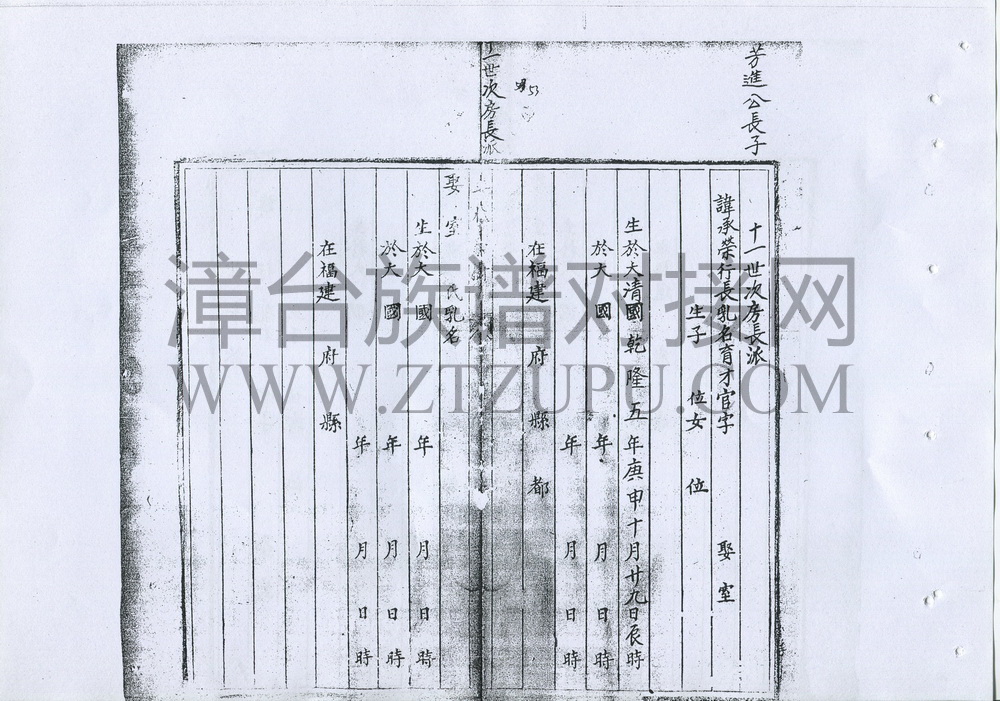 芳進公長子
十一世次房長派
諱承榮行長乳名育才官字 娶室
生子 位女 位
生於大清國乾隆五年庚申十月廿九日辰時
於大 國 年 月 日 時
年 月 日 時
在福建 府 縣 都
53
一世次房長派
娶室 氏乳名
生於大 國 年 月 日 時
於大 國 年 月 日 時
年 月 日 時
在福建 府 縣
漳台族谱对接网
WWW.ZTZUPU.COM